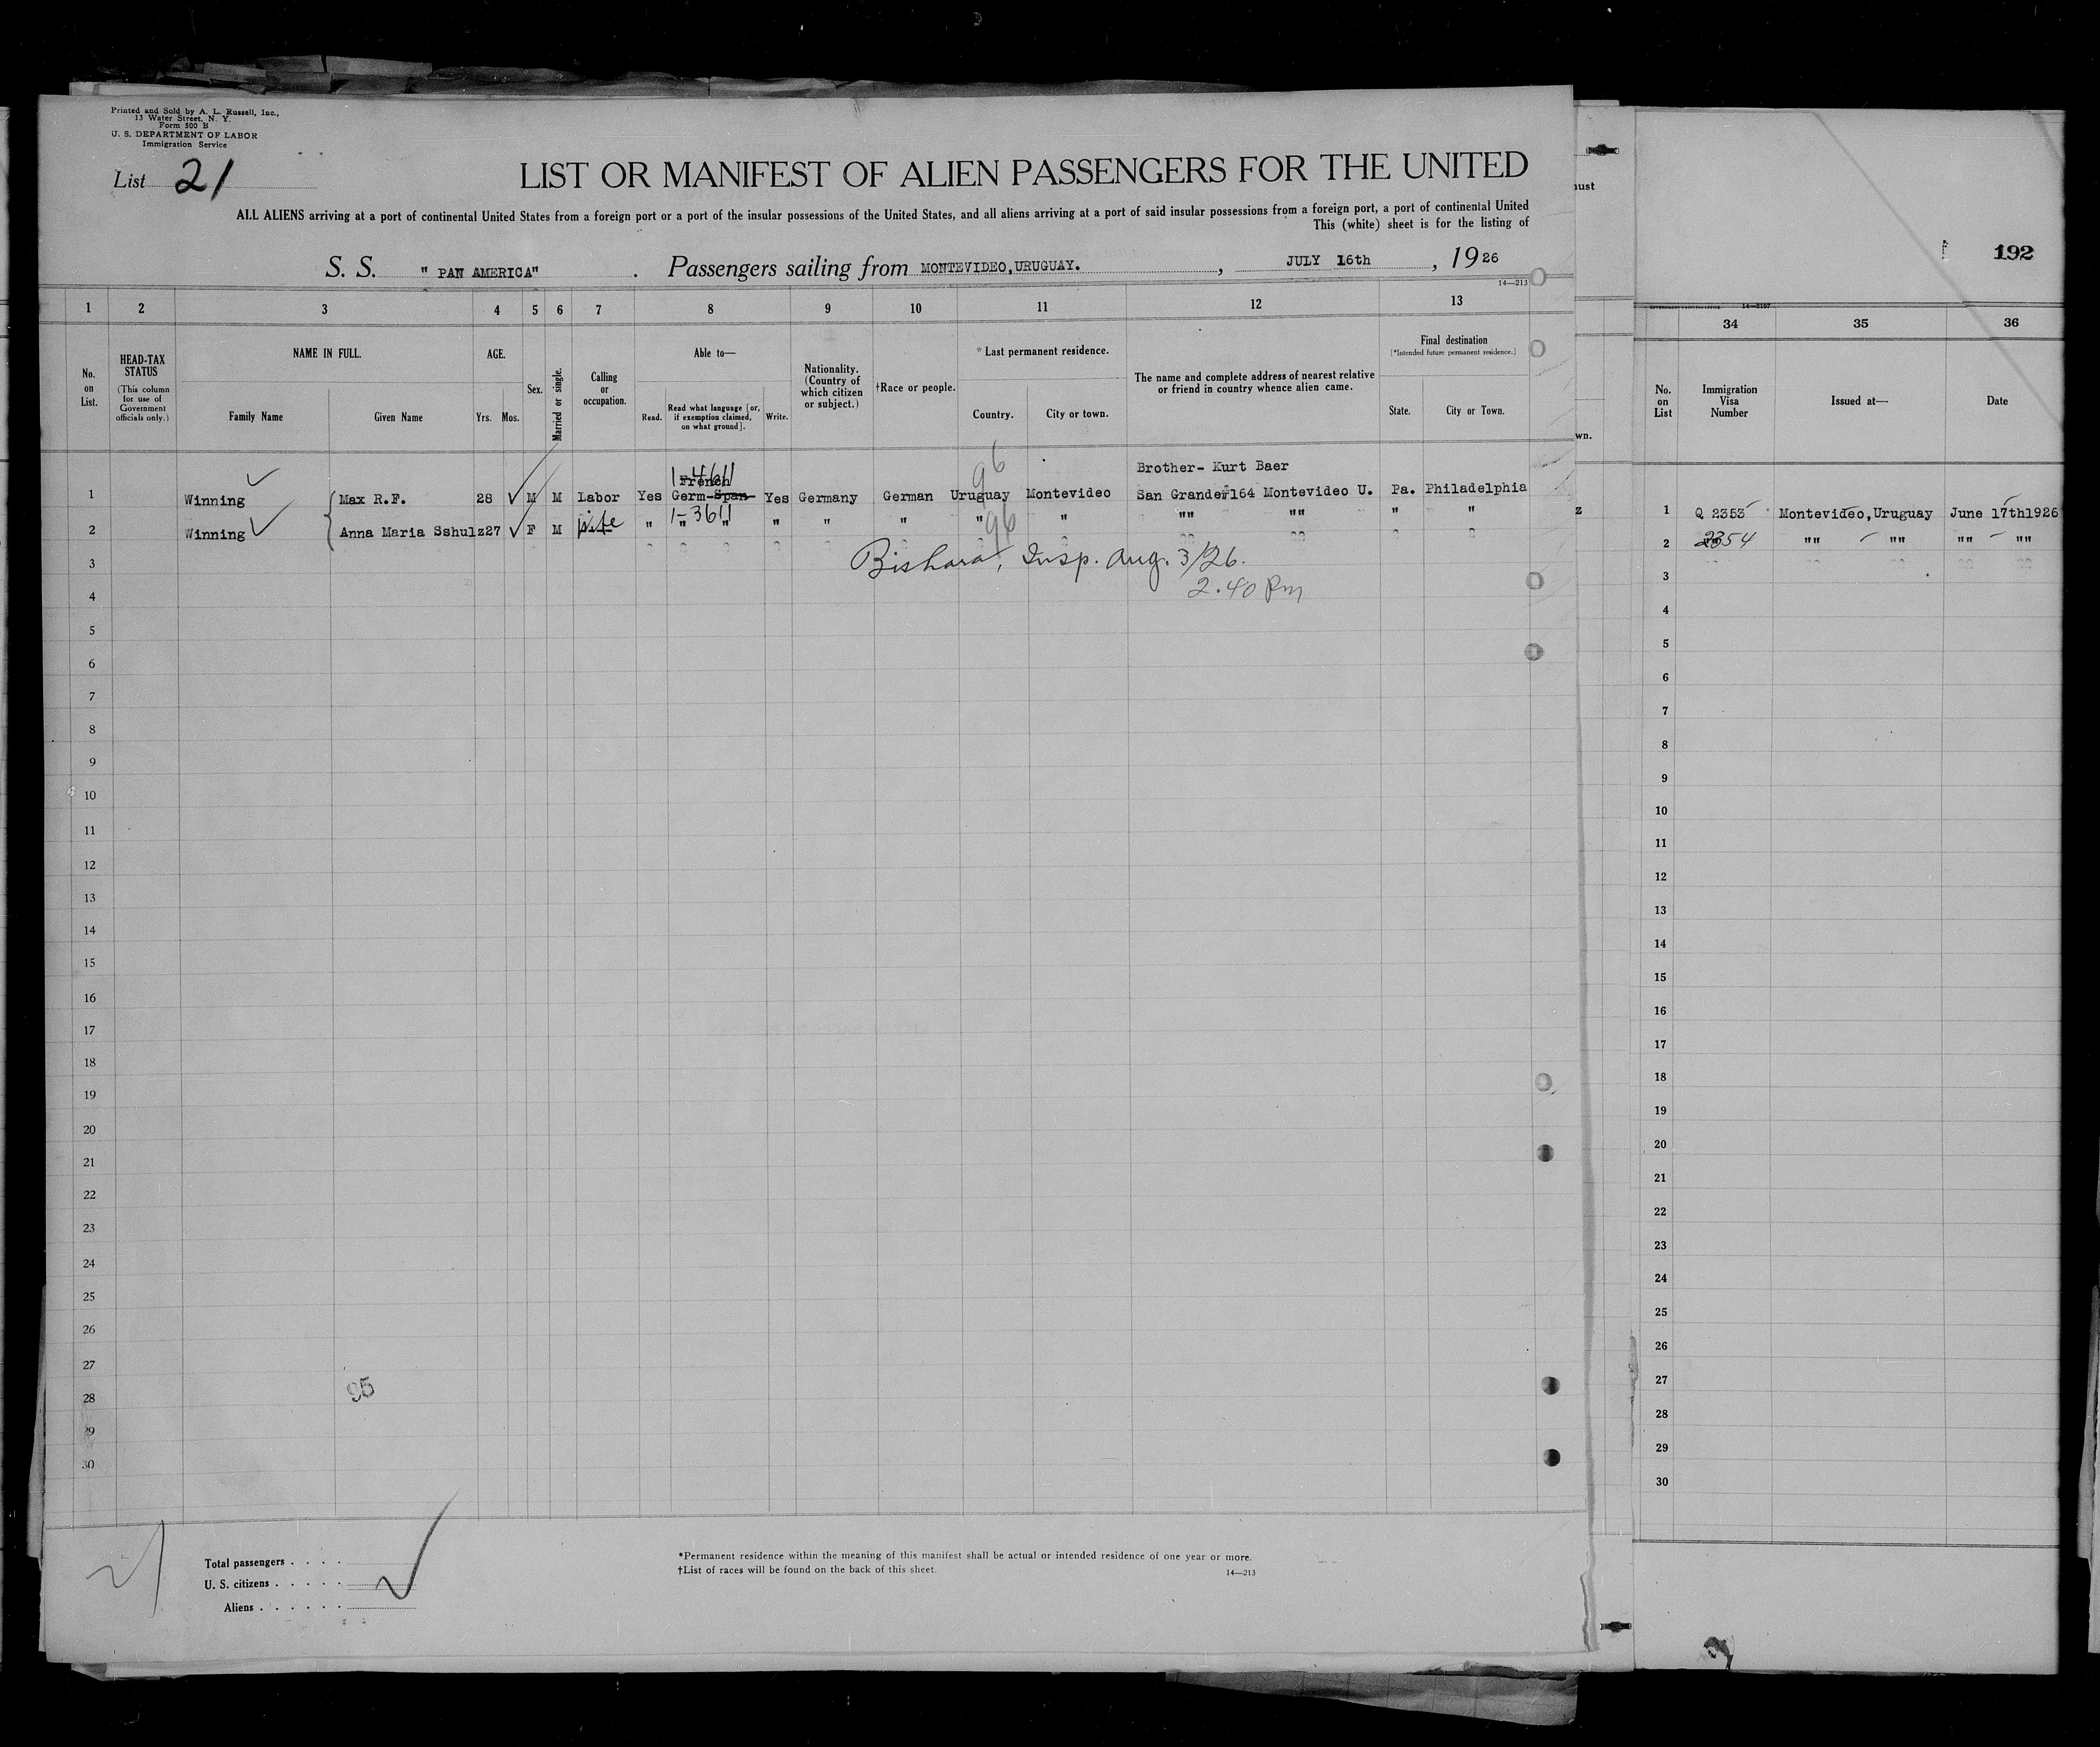 Printed and Sold by A. L. Russell, Inc.,
13 Water Street, N. Y.
Form 500 B
U. S. DEPARTMENT OF LABOR
Immigration Service
List 21
LIST OR MANIFEST OF ALIEN PASSENGERS FOR THE UNITED
ALL ALIENS arriving at a port of continental United States from a foreign port or a port of the insular possessions of the United States, and all aliens arriving at a port of said insular possessions from a foreign port, a port of continental United
This (white) sheet is for the listing of
S. S. " PAN AMERICA" . Passengers sailing from MONTEVIDEO,URUGUAY. , JULY 16th , 1926
14—213
1 2 3 4 5 6 7 8 9 10 11 12 13
No. on List.
HEAD-TAX STATUS
(This column for use of Government officials only.)
NAME IN FULL.
Family Name Given Name
AGE.
Yrs. Mos.
Sex.
Married or single.
Calling or occupation.
Able to—
Read. Read what language [or, if exemption claimed, on what ground]. Write.
Nationality. (Country of which citizen or subject.)
†Race or people.
*Last permanent residence.
Country. City or town.
The name and complete address of nearest relative or friend in country whence alien came.
Final destination
[*Intended future permanent residence.]
State. City or Town.
96
Brother- Kurt Baer
French
1 Winning Max R.F. 28 M M Labor Yes Germ-Span Yes Germany German Uruguay Montevideo San Grande#164 Montevideo U. Pa. Philadelphia
1-3611
2 Winning Anna Maria Sshulz27 F M Wife " " " " " " " " "" "" " "
96
3
Bishara, Insp. Aug. 3/26.
4
2.40 Pm
5
6
7
8
9
10
11
12
13
14
15
16
17
18
19
20
21
22
23
24
25
26
27
28
95
29
30
21
Total passengers . . . .
U. S. citizens . . . . .
Aliens . . . . . .
*Permanent residence within the meaning of this manifest shall be actual or intended residence of one year or more.
†List of races will be found on the back of this sheet.
14—213
wn.
z
192
34 35 36
No. on List
Immigration Visa Number
Issued at—
Date
1 Q 2353 Montevideo,Uruguay June 17th1926
2 2354 "" "" "" ""
3
4
5
6
7
8
9
10
11
12
13
14
15
16
17
18
19
20
21
22
23
24
25
26
27
28
29
30